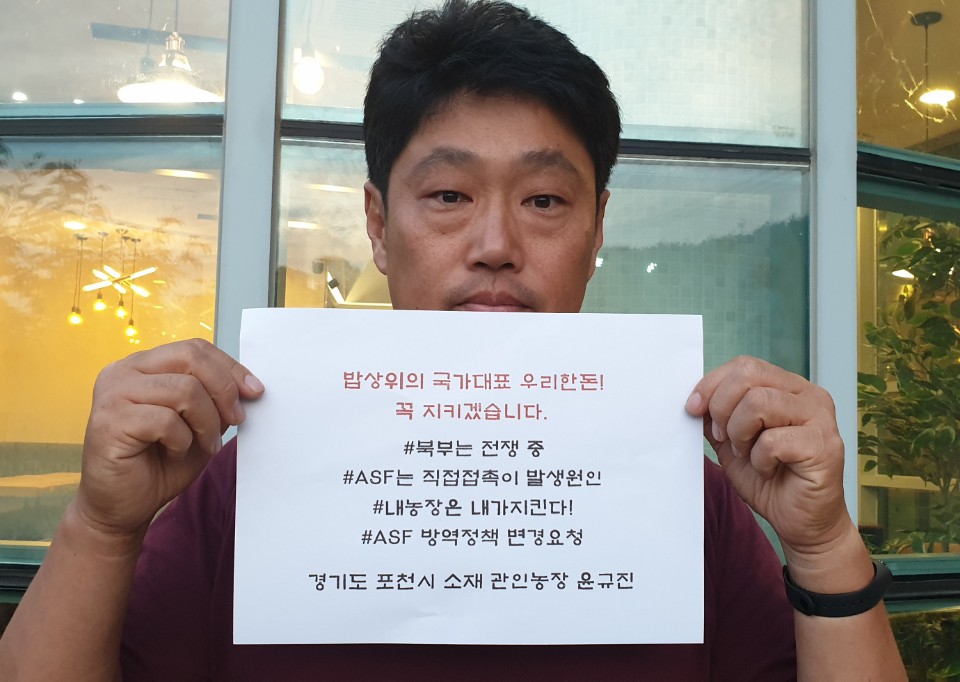 밥상위의 국가대표 우리한돈!
꼭 지키겠습니다.
#북부는 전쟁 중
#ASF는 직접접촉이 발생원인
#내농장은 내가지킨다!
#ASF 방역정책 변경요청
경기도 포천시 소재 관인농장 윤규진